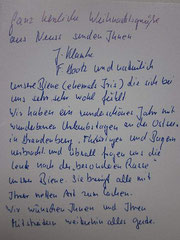 ganz herzliche Weihnachtsgrüße
aus Neuss senden Ihnen
J. Klauke
F. Loots und natürlich
unsere Biene (ehemals Iris) die sich bei
uns sehr sehr wohl fühlt
Wir haben ein wunderschönes Jahr mit
wunderbaren Urlaubstagen an der Ostsee
in Brandenburg, Thüringen und Bayern
verbracht und überall fragen uns die
Leute nach der besonderen Rasse
unserer Biene. Sie bringt alle mit
Ihrer netten Art zum Lachen.
Wir wünschen Ihnen und Ihren
Mitstreitern weiterhin alles Gute.